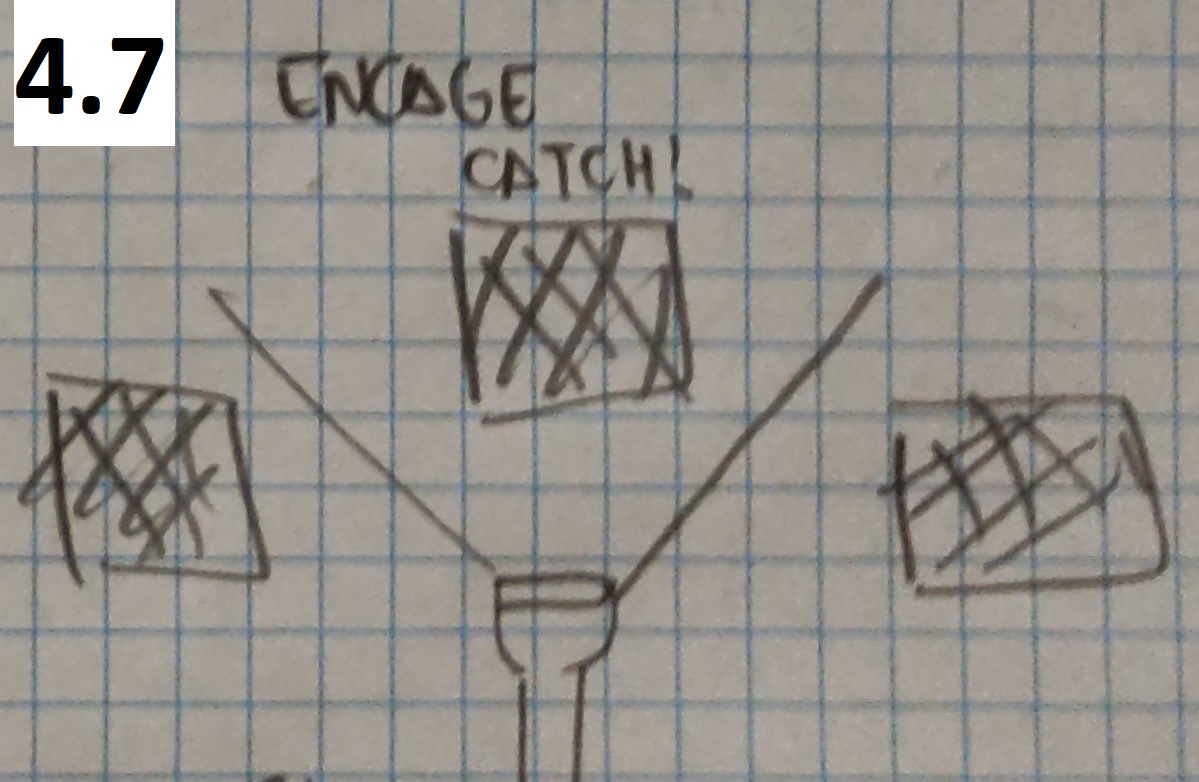 4.7
ENCAGE
CATCH!